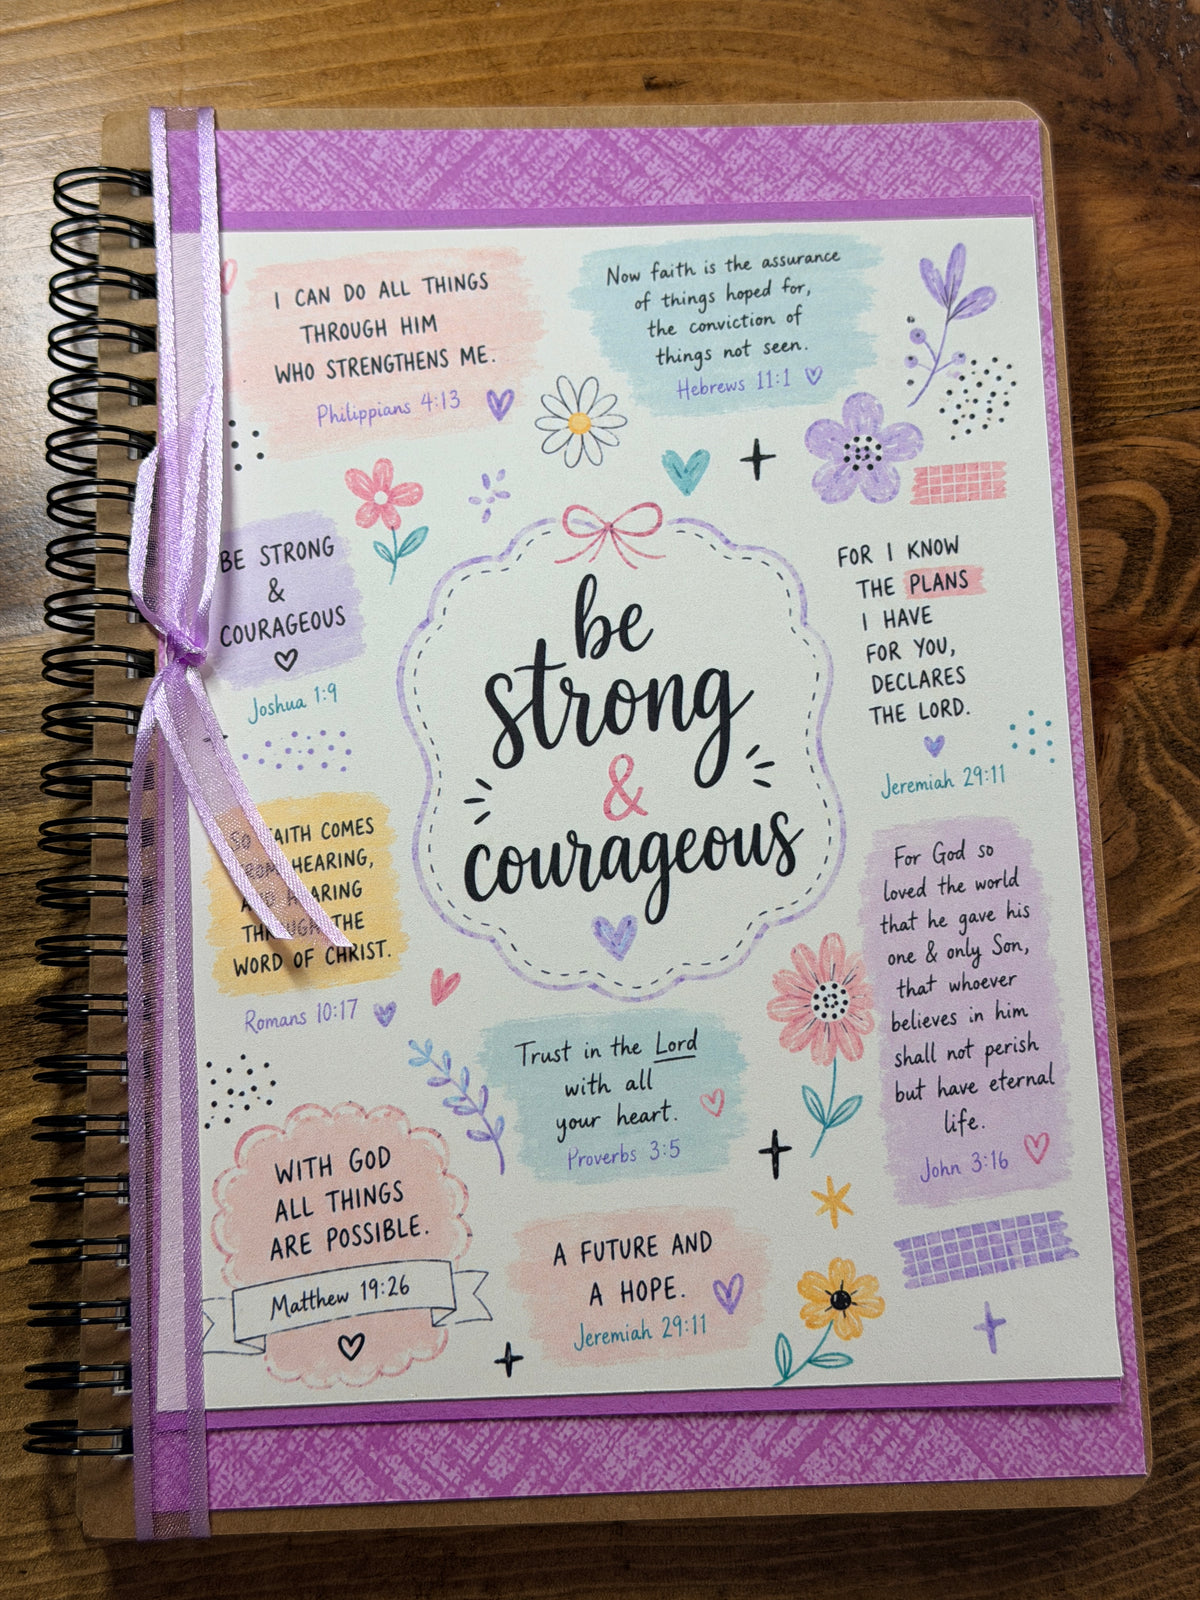 I CAN DO ALL THINGS
THROUGH HIM
WHO STRENGTHENS ME.
Philippians 4:13
Now faith is the assurance
of things hoped for,
the conviction of
things not seen.
Hebrews 11:1
BE STRONG
&
COURAGEOUS
Joshua 1:9
be
strong
&
courageous
FOR I KNOW
THE PLANS
I HAVE
FOR YOU,
DECLARES
THE LORD.
Jeremiah 29:11
SO FAITH COMES
FROM HEARING,
AND HEARING
THROUGH THE
WORD OF CHRIST.
Romans 10:17
For God so
loved the world
that he gave his
one & only Son,
that whoever
believes in him
shall not perish
but have eternal
life.
John 3:16
Trust in the Lord
with all
your heart.
Proverbs 3:5
WITH GOD
ALL THINGS
ARE POSSIBLE.
Matthew 19:26
A FUTURE AND
A HOPE.
Jeremiah 29:11